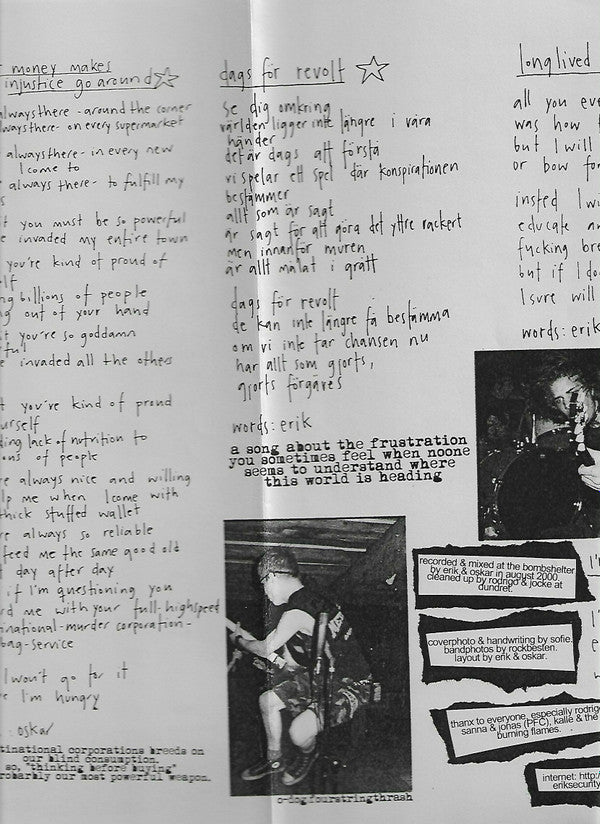 money makes
injustice go around
always there - around the corner
always there - on every supermarket
always there - in every new
I come to
always there - to fulfill my
you must be so powerful
invaded my entire town
you're kind of proud of
billions of people
out of your hand
you're so goddamn
invaded all the others
you're kind of proud
lack of nutrition to
of people
always nice and willing
me when I come with
thick stuffed wallet
always so reliable
feed me the same good old
day after day
if I'm questioning you
me with your full-highspeed
national-murder corporation-
bag-service
I won't go for it
I'm hungry
: oskar
tinational corporations breeds on
our blind consumption.
so, "thinking before buying"
probarbly our most powerful weapon.
dags för revolt
se dig omkring
världen ligger inte längre i våra
händer
det är dags att förstå
vi spelar ett spel där konspirationen
bestämmer
allt som är sagt
är sagt för att göra det yttre vackert
men innanför muren
är allt målat i grått
dags för revolt
de kan inte längre få bestämma
om vi inte tar chansen nu
har allt som gjorts,
gjorts förgäves
words: erik
a song about the frustration
you sometimes feel when noone
seems to understand where
this world is heading
o-dog fourstringthrash
longlived
all you eve
was how
but I will
or bow for
insted I wi
educate an
fucking bre
but if I do
I sure will
words: erik
recorded & mixed at the bombshelter
by erik & oskar in august 2000.
cleaned up by rodrigo & jocke at
dundret.
coverphoto & handwriting by sofie.
bandphotos by rockbesten.
layout by erik & oskar.
thanx to everyone, especially rodrigo
sanna & jonas (PFC), kalle & the
burning flames.
internet: http:/
eriksecurity